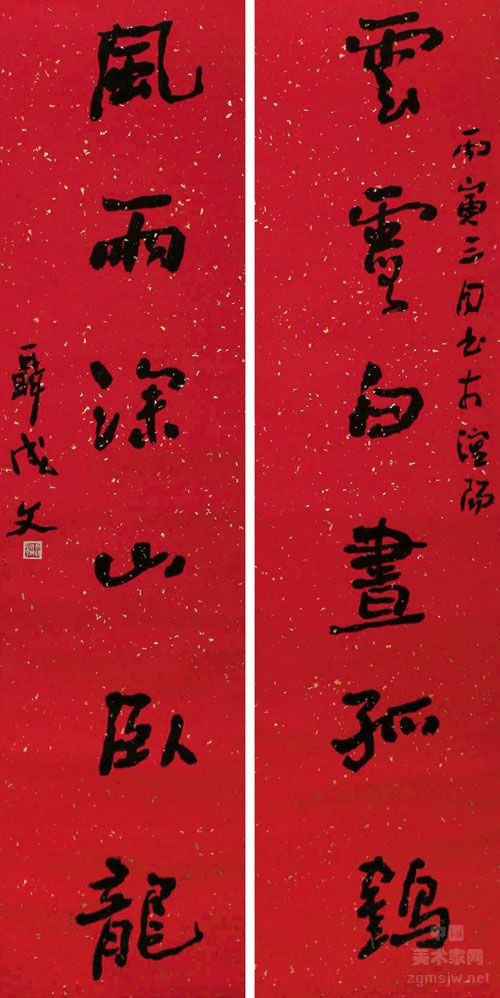 雲霄白晝孤鶴
丙寅三月书
風雨深山臥龍
聶成文
中国
美术家网
zgmsjw.net